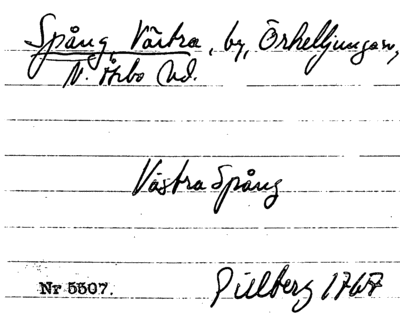 Spång, Västra, by, Örkelljunga sn,
N. Åsbo hd.
Västra Spång
Gillberg 1767
Nr 5507.